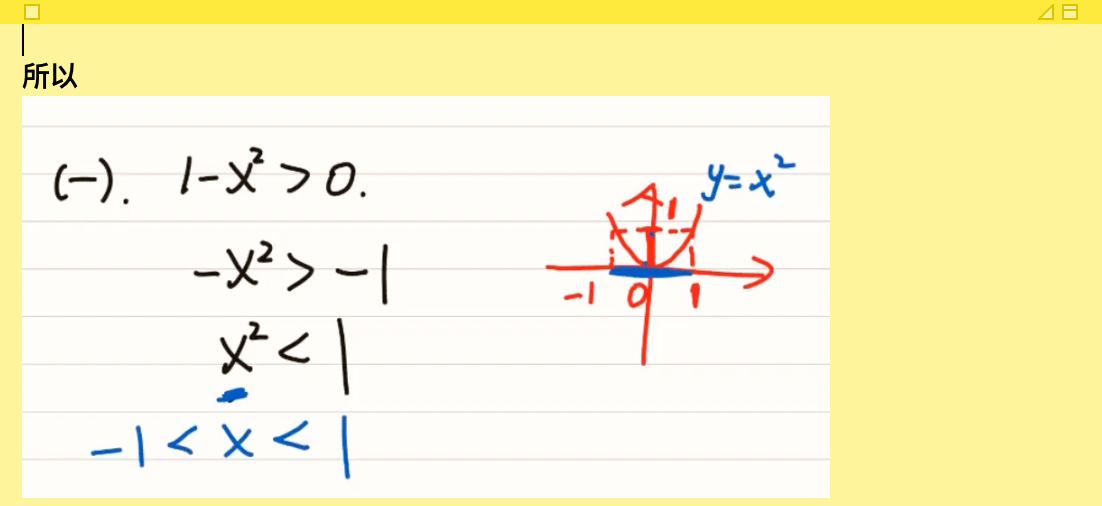 所以
(一). 1-x²>0.
-x²>-1
x²<1
-1<x<1
y=x²
1
-1 0 1